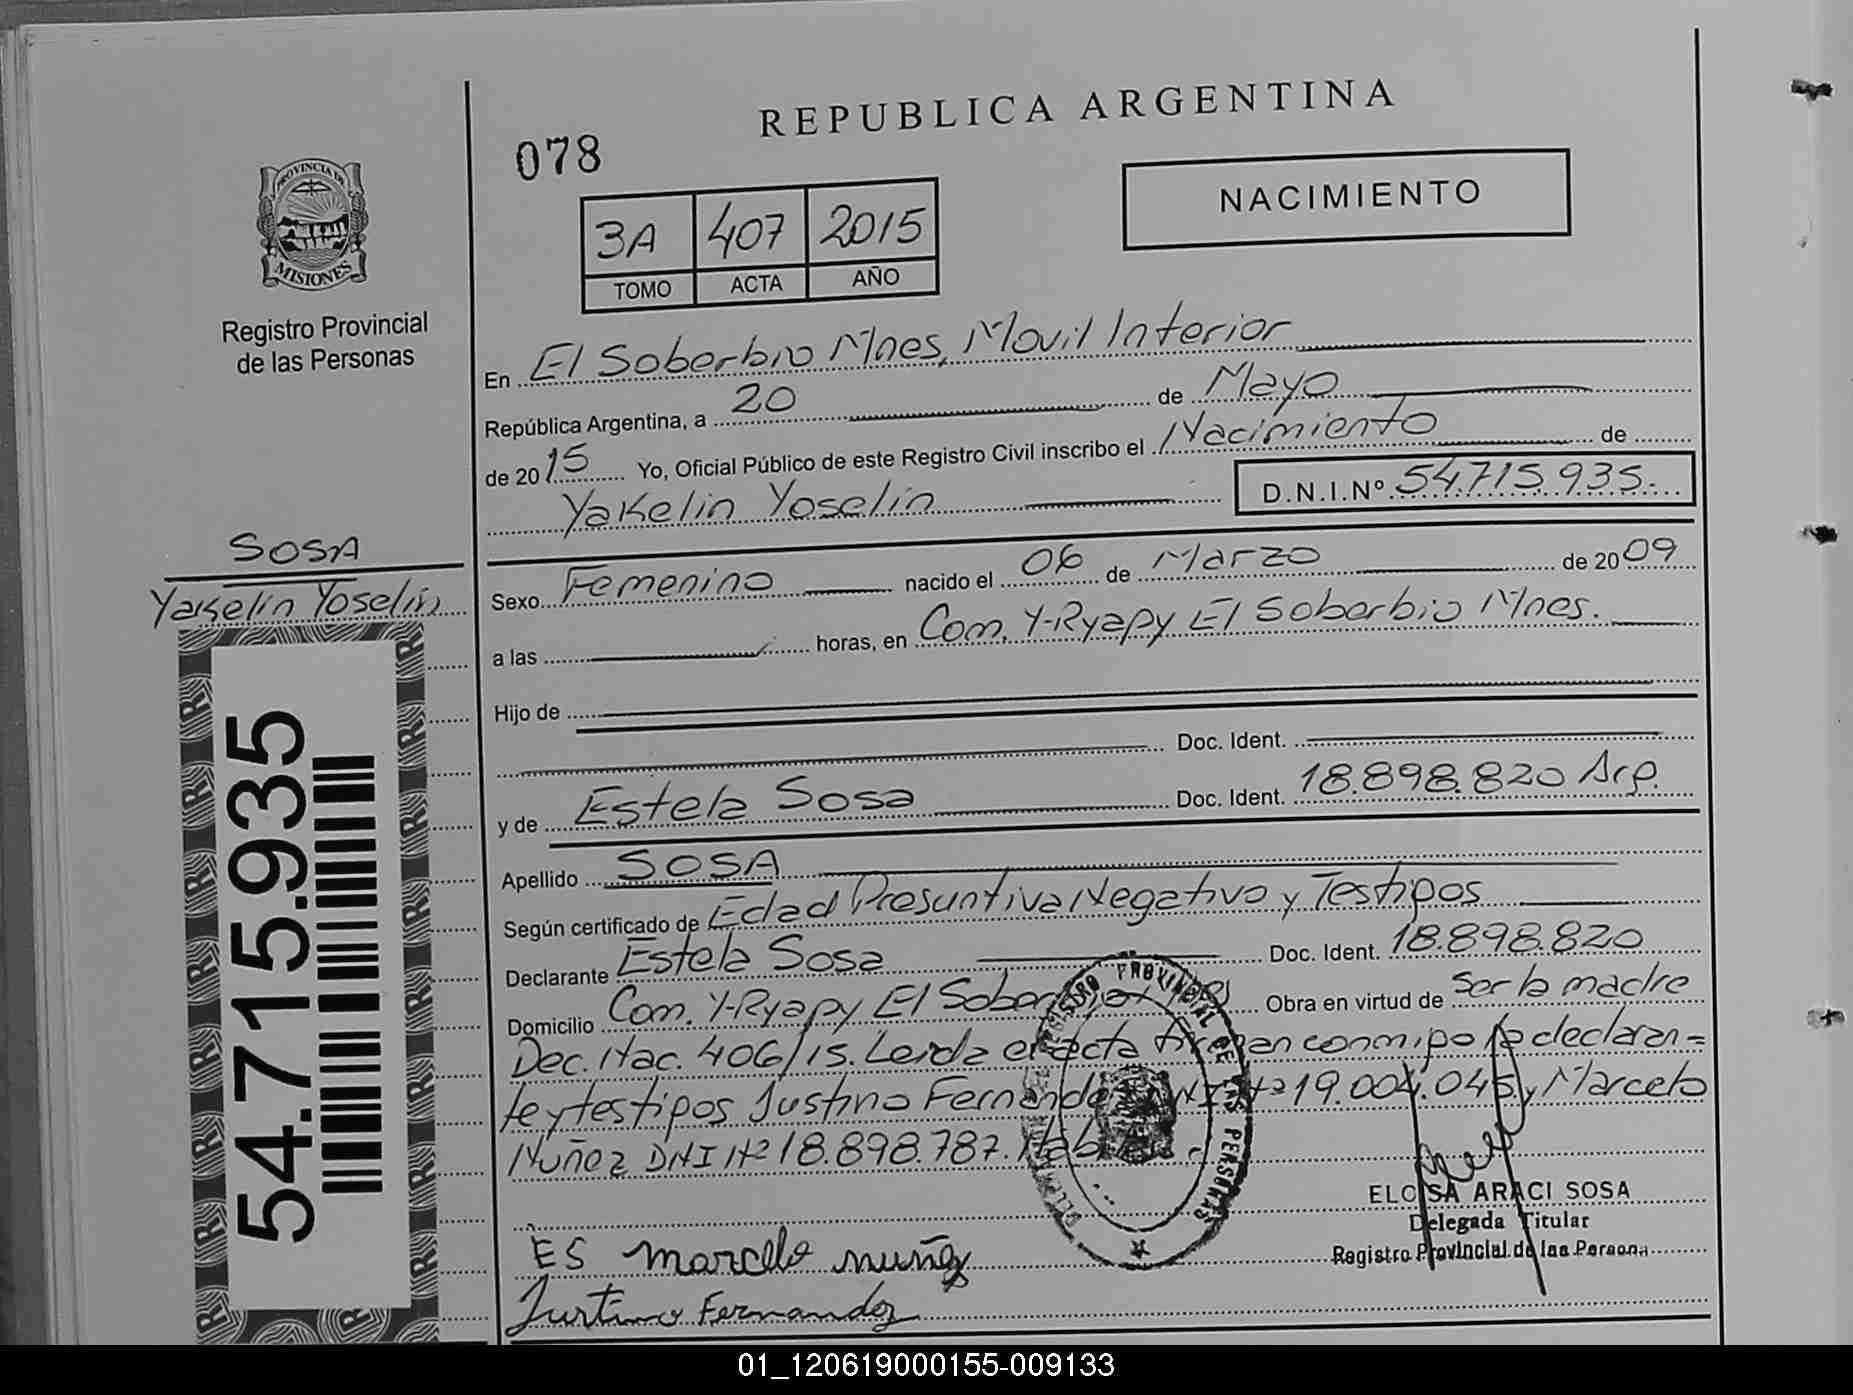 REPUBLICA ARGENTINA
078
NACIMIENTO
3A 407 2015
TOMO ACTA AÑO
PROVINCIA DE
MISIONES
Registro Provincial
de las Personas
En El Soberbio Mnes, Movil Interior
República Argentina, a 20 de Mayo
de 2015 Yo, Oficial Público de este Registro Civil inscribo el Nacimiento de
Yakelin Yoselin D.N.I.Nº 54.715.935.-
SOSA
Yakelin Yoselin
54.715.935
Sexo Femenino nacido el 06 de Marzo de 2009
a las horas, en Com. Y-Ryapy El Soberbio Mnes.
Hijo de
Doc. Ident.
y de Estela Sosa Doc. Ident. 18.898.820 Arg.
Apellido SOSA
Según certificado de Edad Presuntiva Negativo y Testigos
Declarante Estela Sosa Doc. Ident. 18.898.820
Domicilio Com. Y-Ryapy El Soberbio Obra en virtud de ser la madre
Dec. Nac. 406/15. Leida el acta firman conmigo la declaran=
te y testigos Justino Fernandez DNI Nº 19.004.045 y Marcelo
Nuñez DNI Nº 18.898.787.
REGISTRO PROVINCIAL DE LAS PERSONAS
ELOISA ARACI SOSA
Delegada Titular
Registro Provincial de las Persona
ES marcelo nuñez
Justino Fernandez
01_120619000155-009133